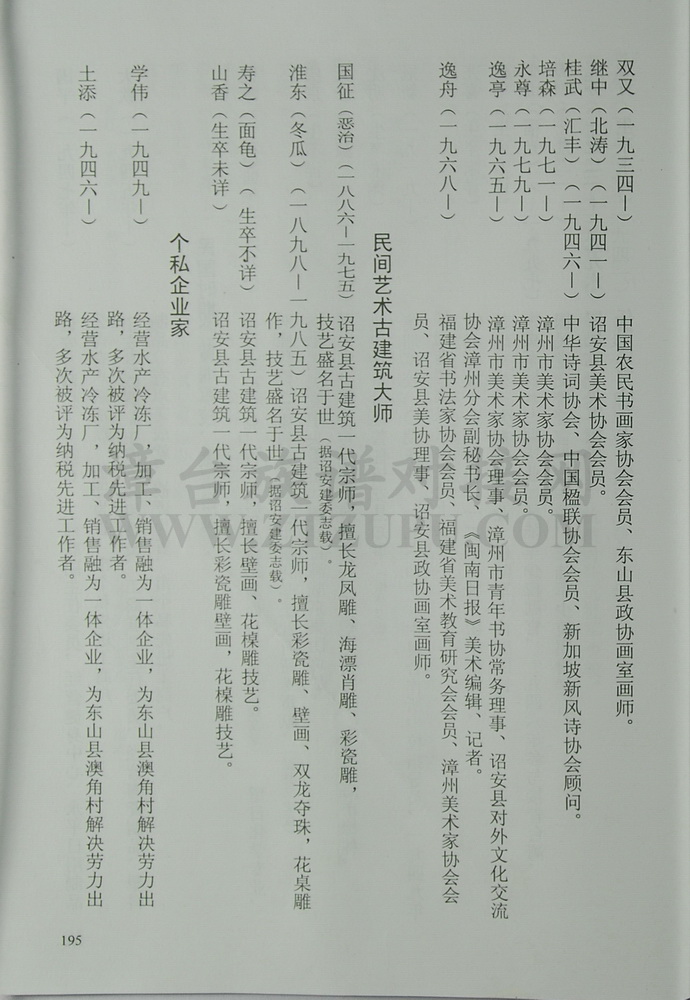 双又（一九三四—）　中国农民书画家协会会员、东山县政协画室画师。
继中（北涛）（一九四一—）　诏安县美术协会会员。
桂武（汇丰）（一九四六—）　中华诗词协会、中国楹联协会会员、新加坡新风诗协会顾问。
培森（一九七一—）　漳州市美术家协会会员。
永尊（一九七九—）　漳州市美术家协会会员。
逸亭（一九六五—）　漳州市美术家协会理事、漳州市青年书协常务理事、诏安县对外文化交流
协会漳州分会副秘书长、《闽南日报》美术编辑、记者。
逸舟（一九六八—）　福建省书法家协会会员、福建省美术教育研究会会员、漳州美术家协会会
员、诏安县美协理事、诏安县政协画室画师。
民间艺术古建筑大师
国征（恶治）（一八八六—一九七五）　诏安县古建筑一代宗师，擅长龙凤雕、海漂肖雕、彩瓷雕，
技艺盛名于世（据诏安建委志载）。
淮东（冬瓜）（一八九八—一九八五）诏安县古建筑一代宗师，擅长彩瓷雕、壁画、双龙夺珠，花桌雕
作，技艺盛名于世（据诏安建委志载）。
寿之（面龟）（生卒不详）　诏安县古建筑一代宗师，擅长壁画、花槕雕技艺。
山香（生卒未详）　诏安县古建筑一代宗师，擅长彩瓷雕壁画，花槕雕技艺。
个私企业家
学伟（一九四九—）　经营水产冷冻厂，加工、销售融为一体企业，为东山县澳角村解决劳力出
路，多次被评为纳税先进工作者。
土添（一九四六—）　经营水产冷冻厂，加工、销售融为一体企业，为东山县澳角村解决劳力出
路，多次被评为纳税先进工作者。
195